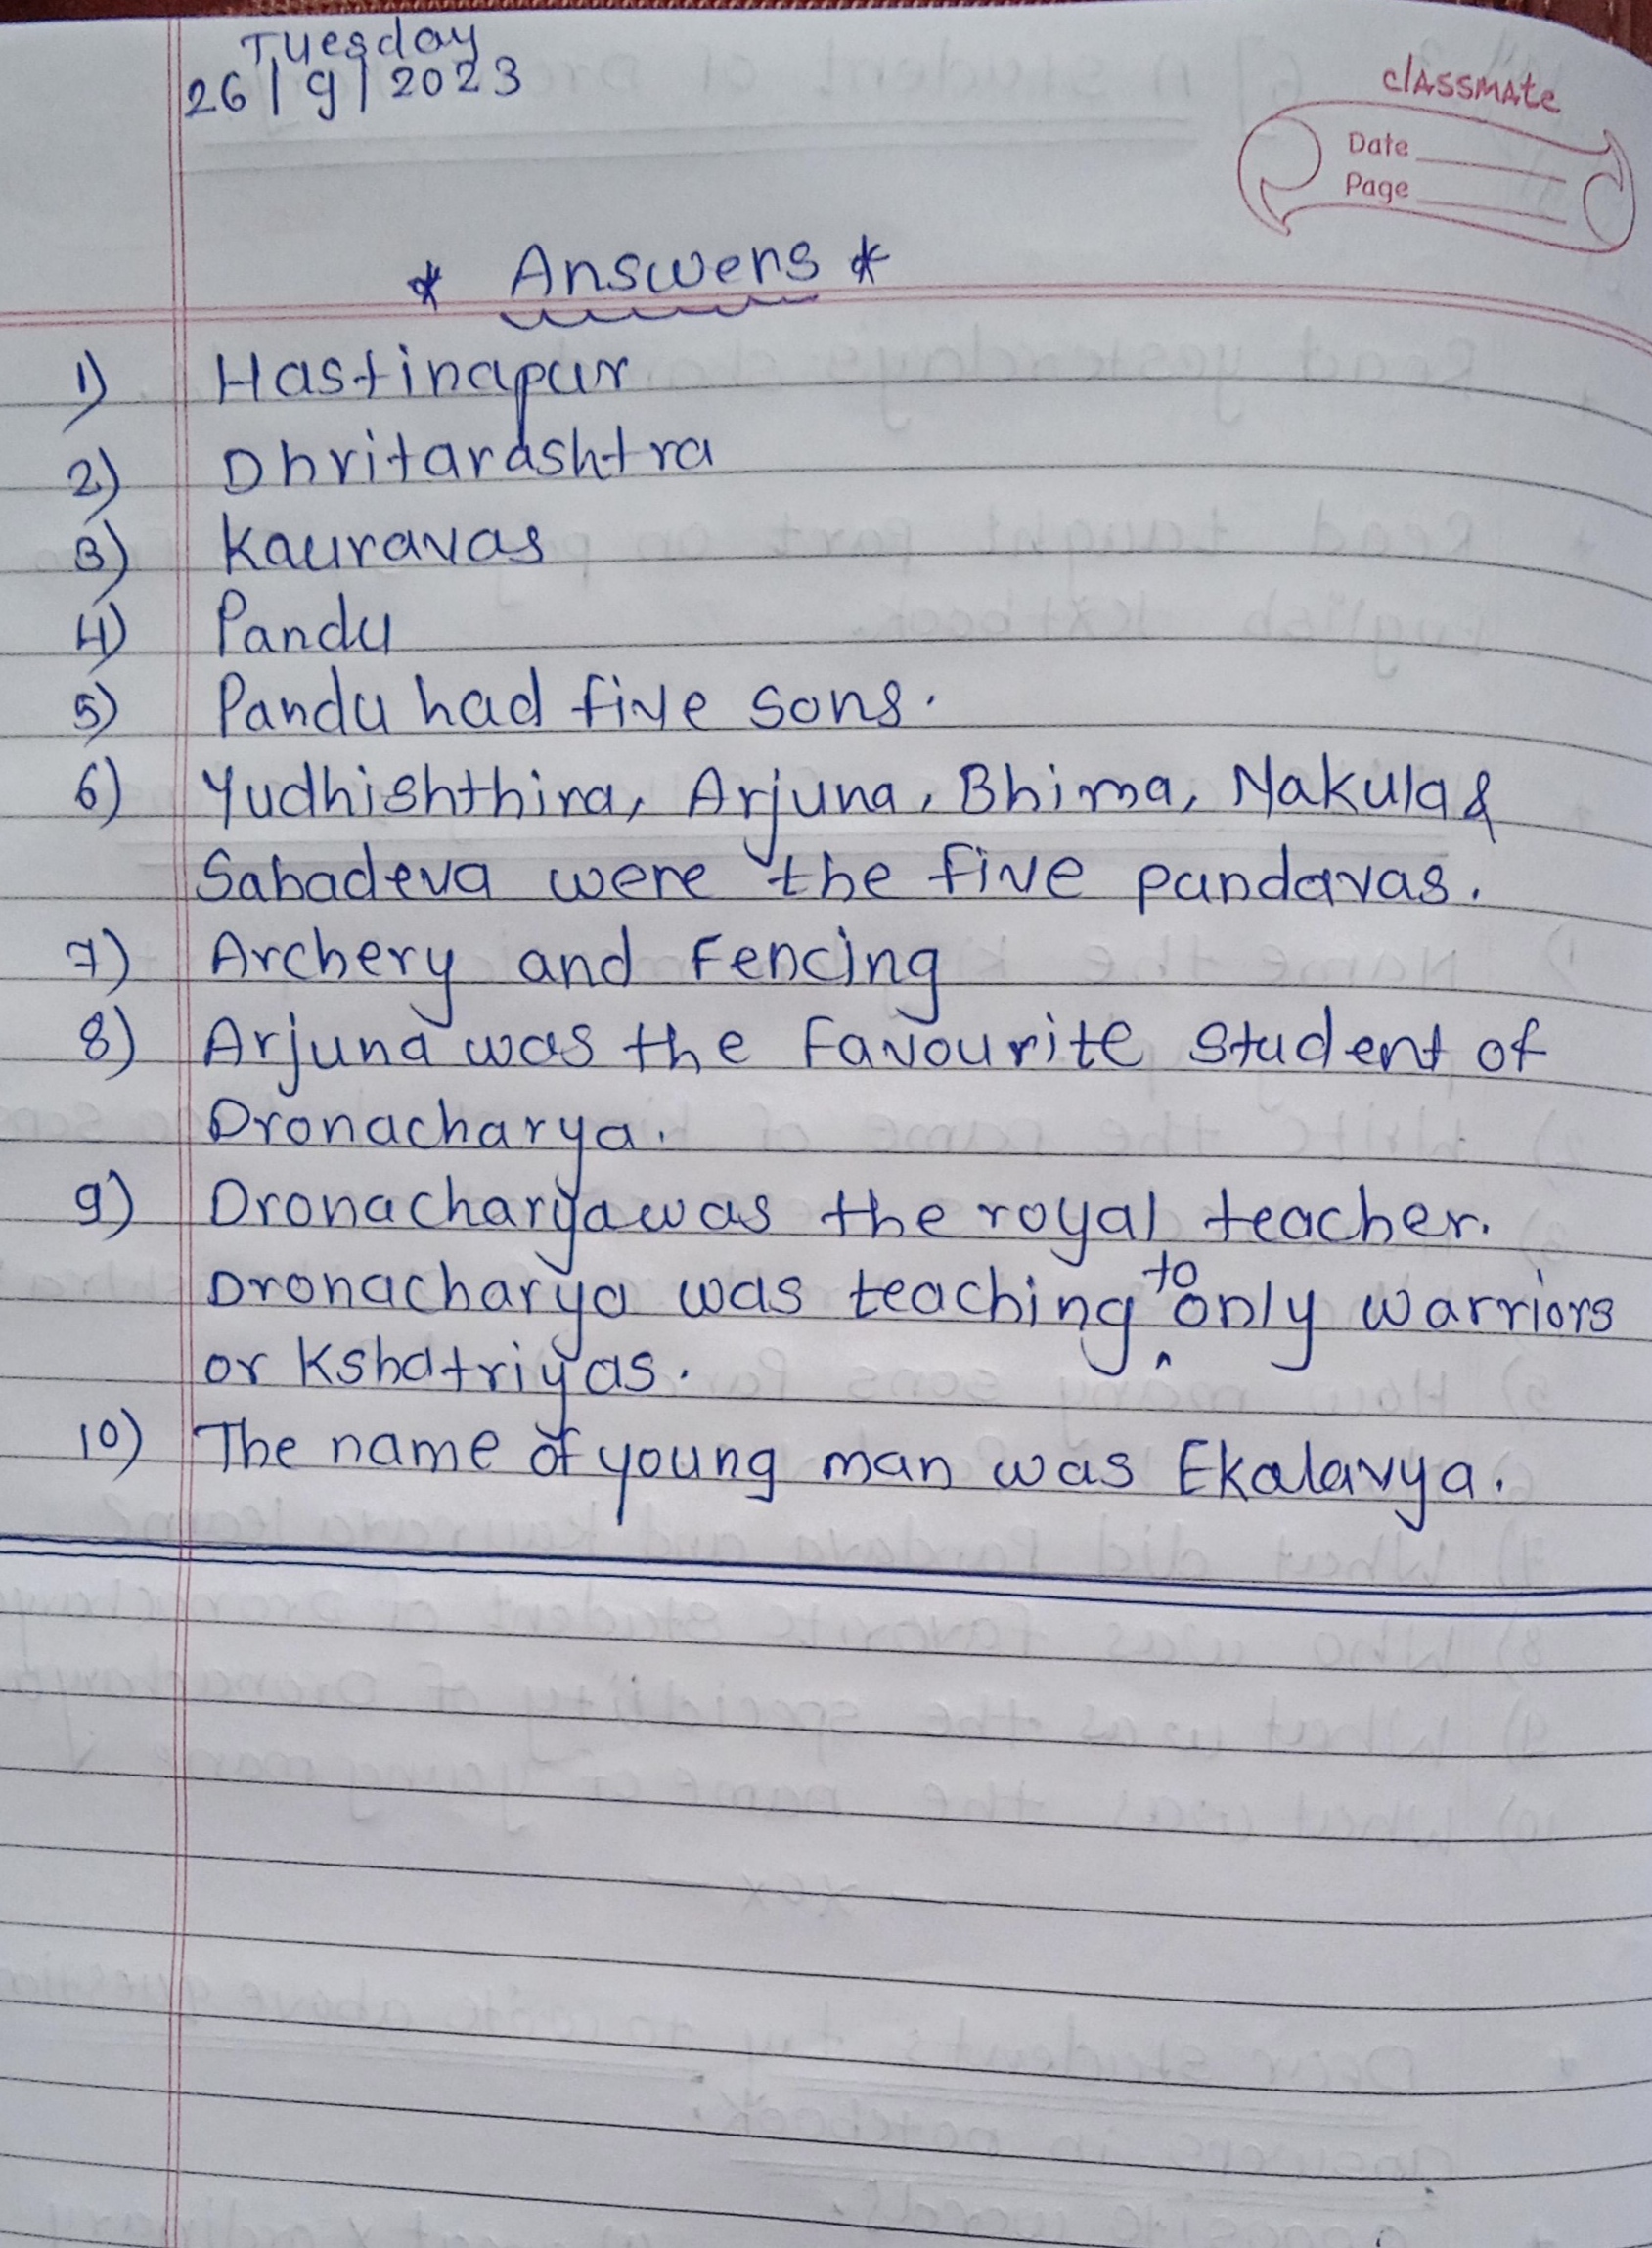 Tuesday
26/9/2023
classmate
Date
Page
* Answers *
1) Hastinapur
2) Dhritarashtra
3) Kauravas
4) Pandu
5) Pandu had five sons.
6) Yudhishthira, Arjuna, Bhima, Nakula &
Sahadeva were the five pandavas.
7) Archery and Fencing
8) Arjuna was the favourite student of
Dronacharya.
9) Dronacharya was the royal teacher.
Dronacharya was teaching to only warriors
or Kshatriyas.
10) The name of young man was Ekalavya.